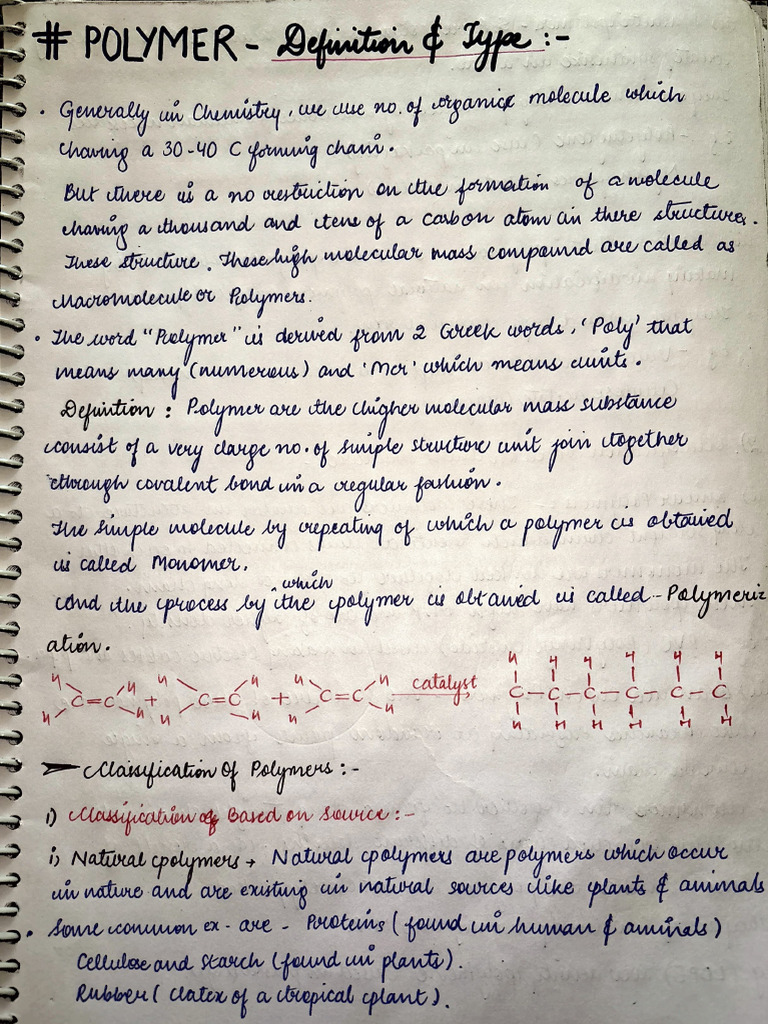 # POLYMER - Definition & Type :-
• Generally in Chemistry, we use no. of organic molecule which
having a 30-40 C forming chain.
But there is a no restriction on the formation of a molecule
having a thousand and tens of a carbon atom in there structures.
These structure. These high molecular mass compound are called as
Macromolecule or Polymers.
• The word "Polymer" is derived from 2 Greek words, 'Poly' that
means many (numerous) and 'Mer' which means units.
Definition : Polymer are the higher molecular mass substance
consist of a very large no. of simple structure unit join together
through covalent bond in a regular fashion.
The simple molecule by repeating of which a polymer is obtained
is called Monomer.
which
and the process by the polymer is obtained is called - Polymeriz
ation.
H H H H H H H H H H H H
C=C + C=C + C=C catalyst C-C-C-C-C-C
H H H H H H H H H H H H
Classification Of Polymers :-
1) Classification of Based on Source :-
i) Natural polymers → Natural polymers are polymers which occur
in nature and are existing in natural sources like plants & animals
• Some common ex- are - Proteins (found in human & animals)
Cellulose and Starch (found in plants).
Rubber (Latex of a tropical plant).